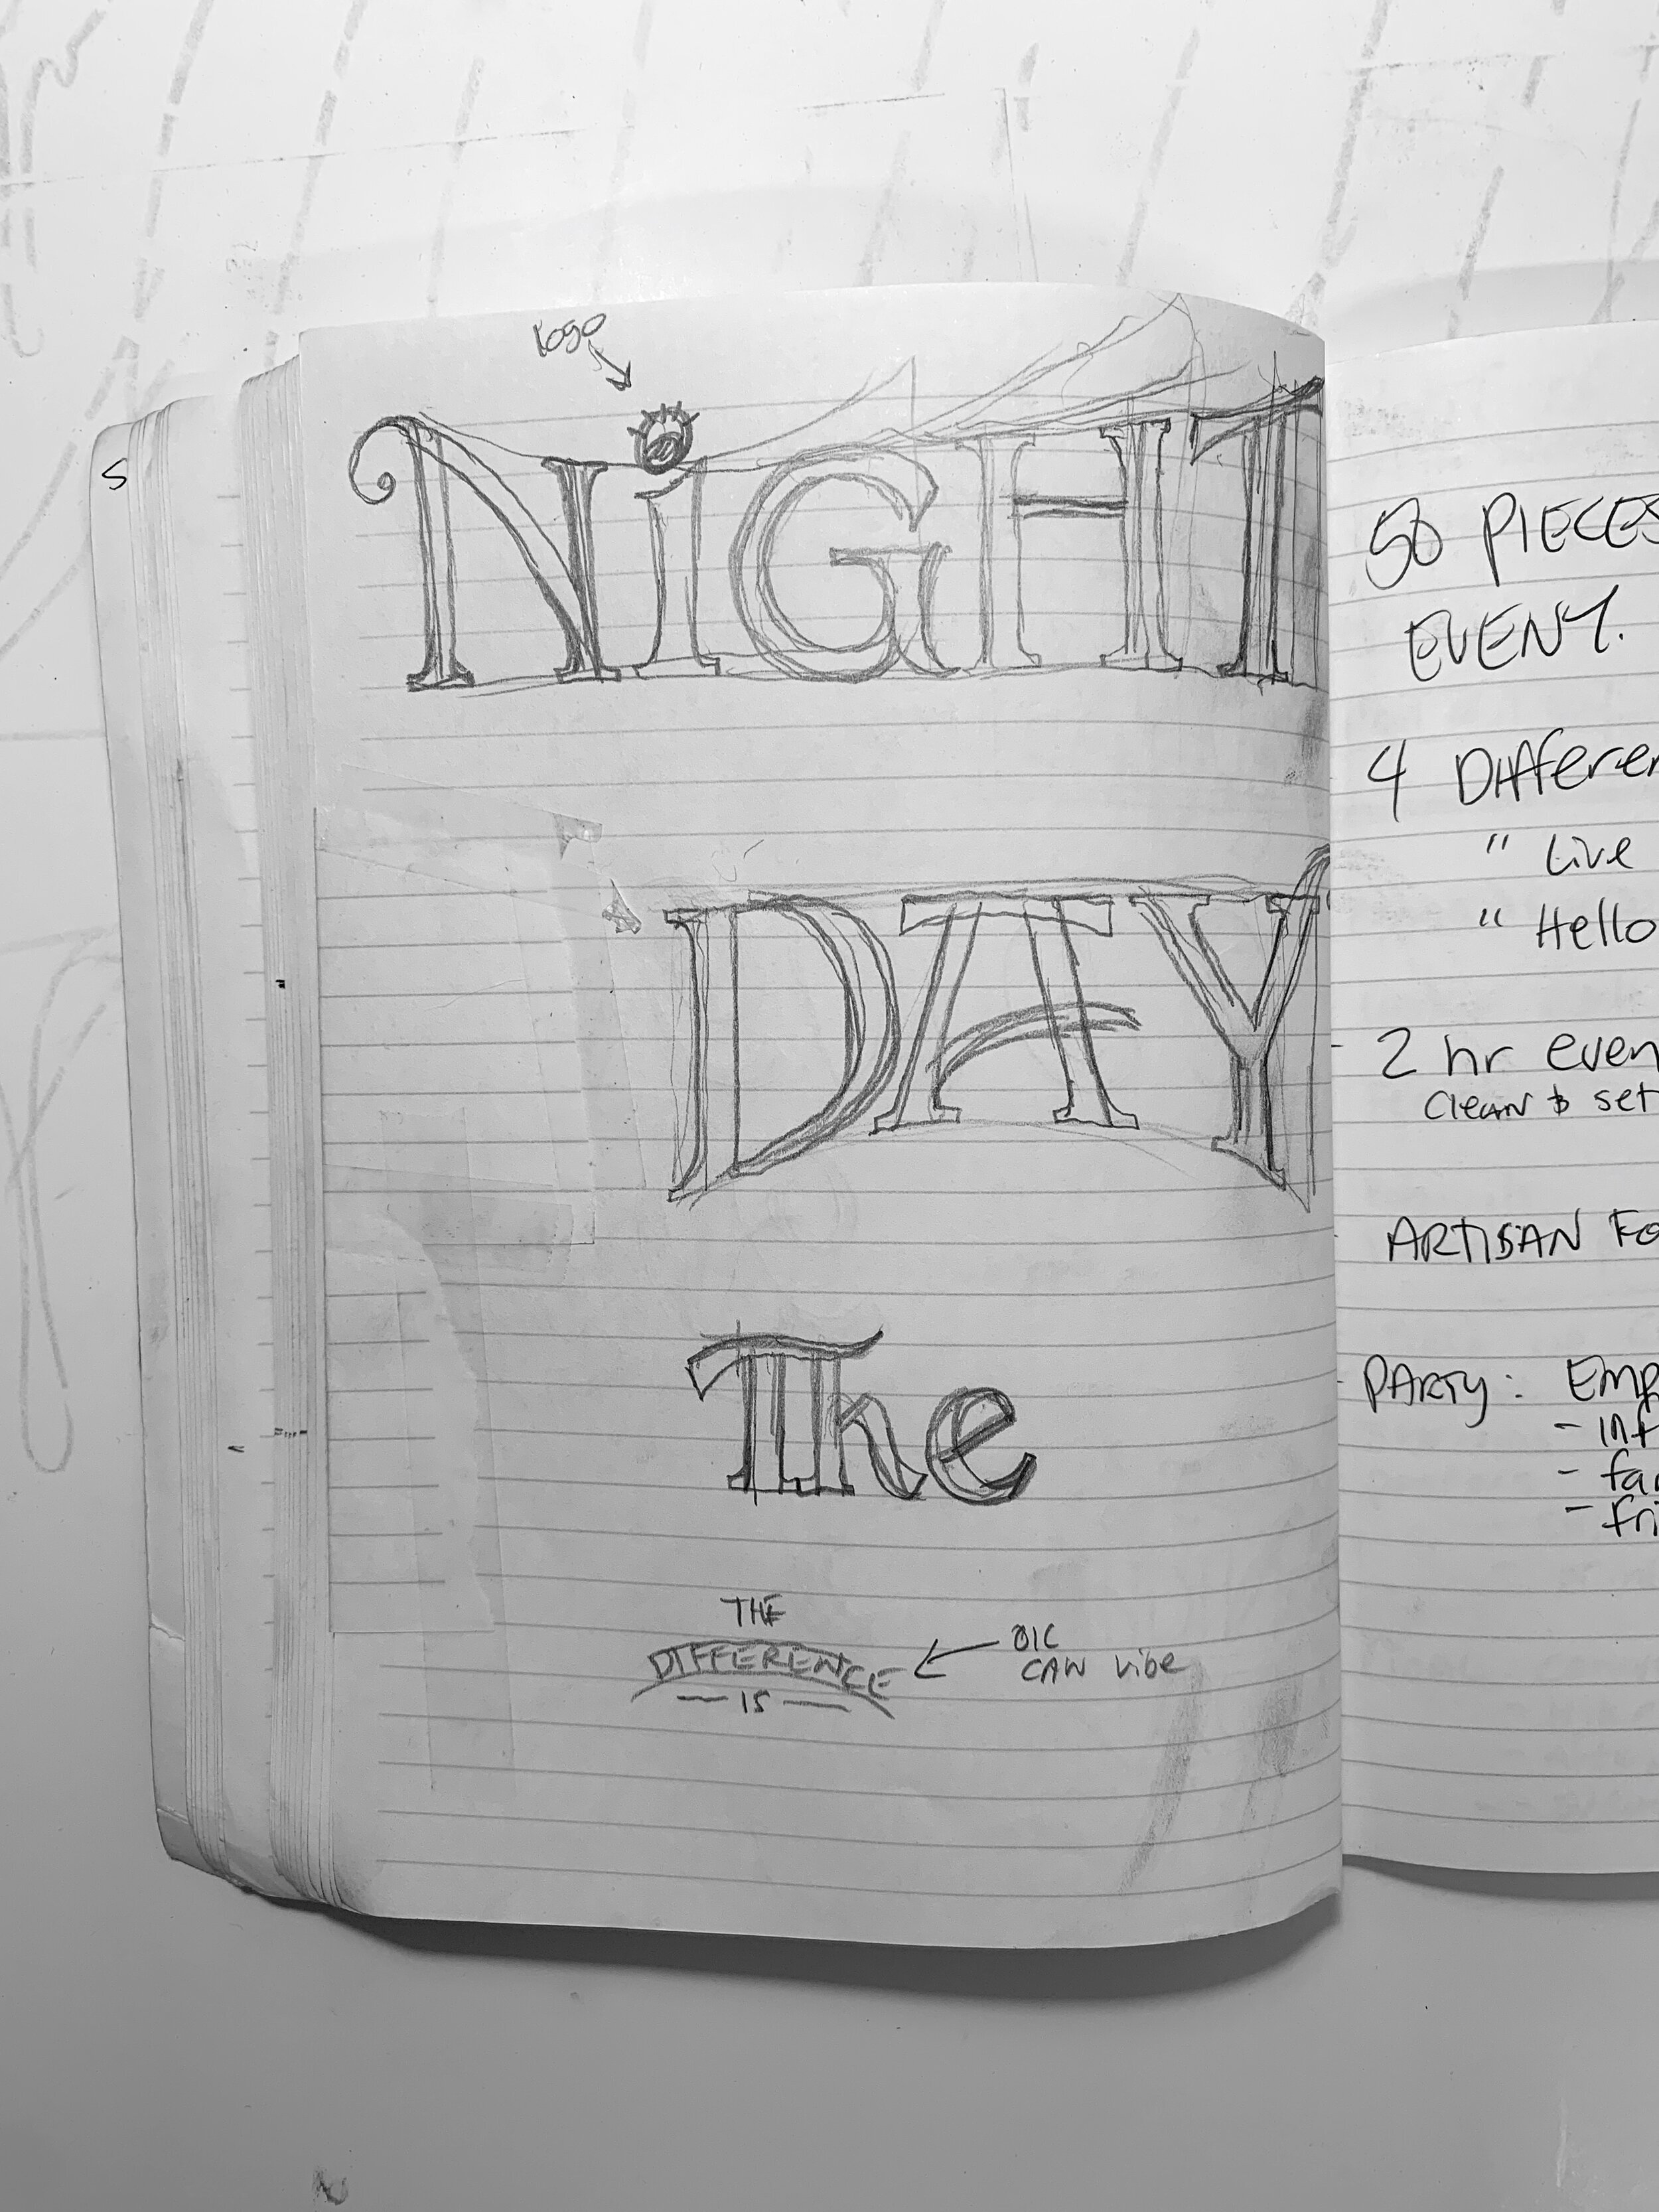 Logo
NiGHT
DAY
The
THE
DIFFERENCE
IS
CAN vibe
S
50 PIECES
EVENT.
4 Differen
" Live
" Hello
2 hr even
Clean & set
ARTISAN FO
PARTY: EMP
- inf
- far
- fri